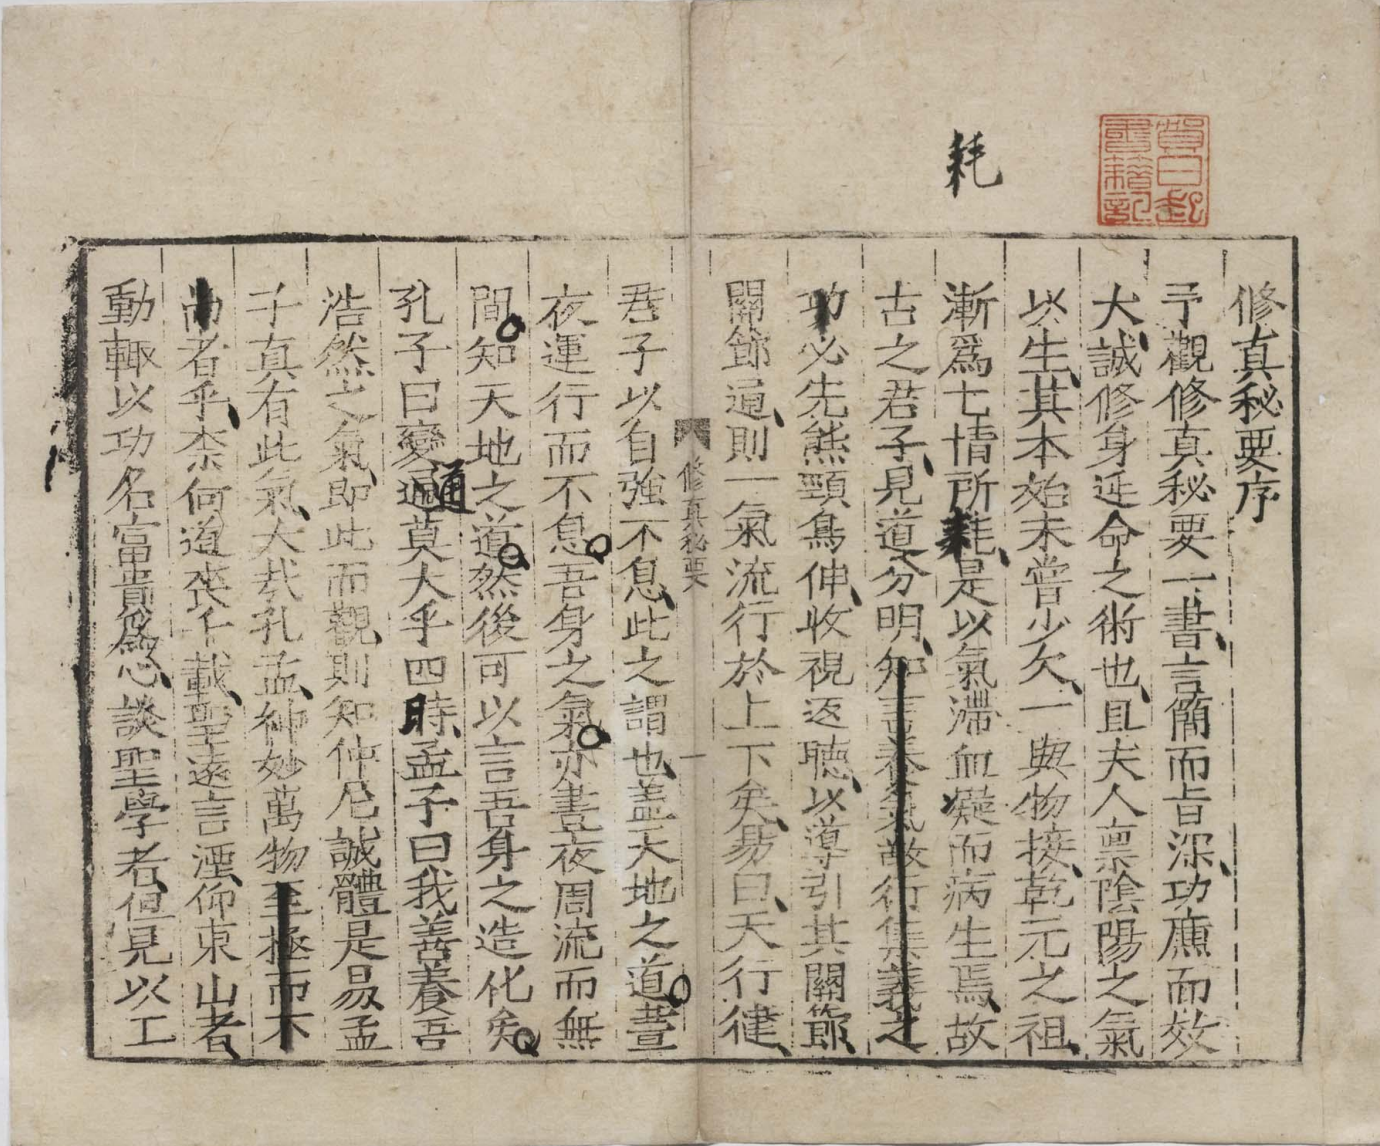 耗
賀曰起
書籍記
修真秘要序
予觀修真秘要一書言簡而旨深功廉而效
大誠修身延命之術也且夫人稟陰陽之氣
以生其本始未嘗少欠一與物接乾元之祖
漸爲七情所耗是以氣滯血凝而病生焉故
古之君子見道分明知言養氣敬行集義之
功必先熊頸鳥伸收視返聽以導引其關節
關節通則一氣流行於上下矣易曰天行健
修真秘要
一
君子以自強不息此之謂也盖天地之道晝
夜運行而不息吾身之氣亦晝夜周流而無
間知天地之道然後可以言吾身之造化矣
孔子曰變通莫大乎四時孟子曰我善養吾
浩然之氣即此而觀則知仲尼誠體是易孟
子真有此氣大哉孔孟神妙萬物至極而不
尚者乎柰何道喪千載聖遠言湮仰東山者
動輒以功名富貴爲心談聖學者但見以工